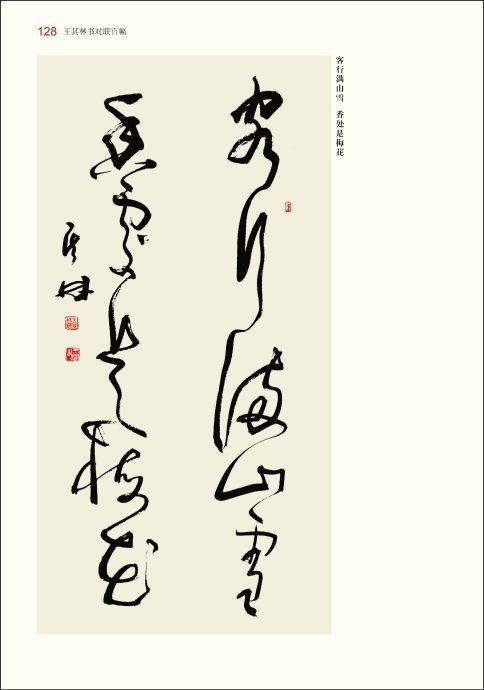 128 王其林书对联百幅
客行满山雪 香处是梅花
客行满山雪
香处是梅花
其林